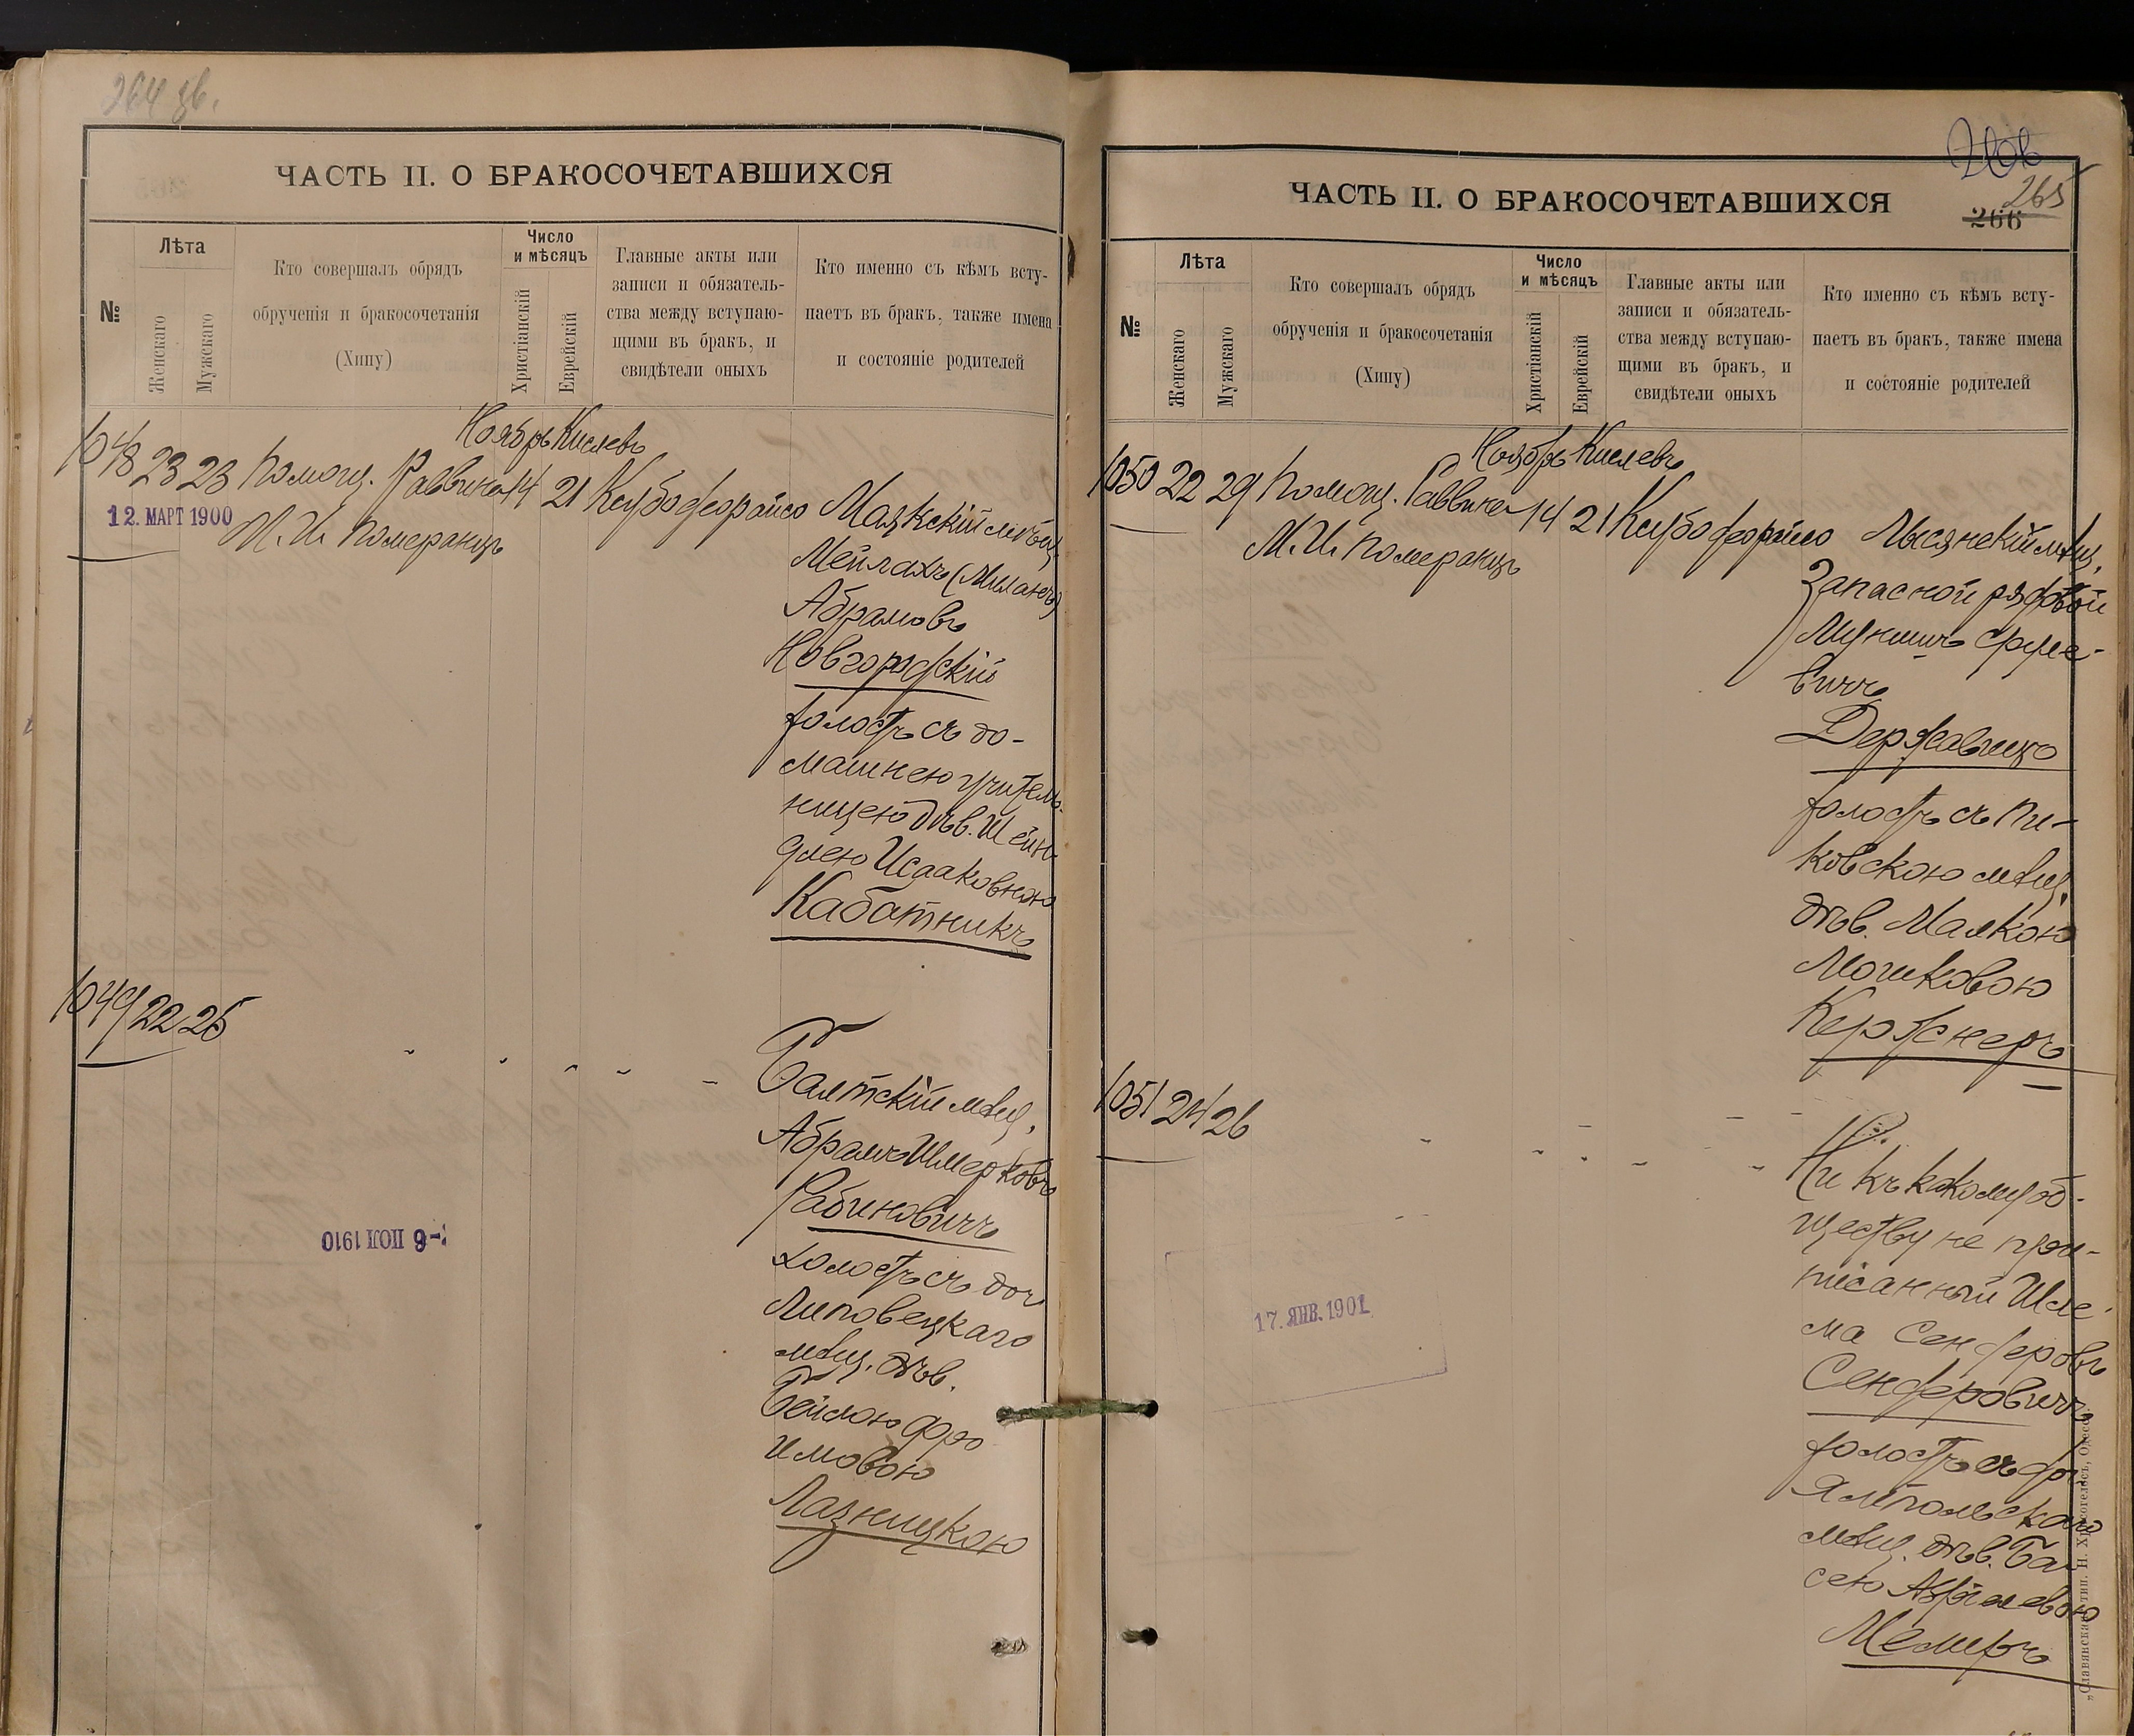 264 зв.
ЧАСТЬ II. О БРАКОСОЧЕТАВШИХСЯ
№
Лѣта
Женскаго
Мужскаго
Кто совершалъ обрядъ
обрученія и бракосочетанія
(Хипу)
Число
и мѣсяцъ
Христіанскій
Еврейскій
Главные акты или
записи и обязатель-
ства между вступаю-
щими въ бракъ, и
свидѣтели оныхъ
Кто именно съ кѣмъ всту-
паетъ въ бракъ, также имена
и состояніе родителей
Ноябрь Кислевъ
1048 23 23 Помощ. Раввина 14 21
12. МАРТ 1900
М. И. Померанцъ
Маякскій мѣщ.
Мейлахъ
Абрамовъ
Новгородскій
холостъ съ до-
машнею учитель-
ницею дѣв. Шейн-
длею Исааковною
Кабатникъ
1049 22 25
Балтскій мѣщ.
Абрамъ Шмерковъ
Рабиновичъ
холостъ съ доч
Липовецкаго
мѣщ. дѣв.
Бейлою Фро
имовою
Лазницкою
-6 ІЮЛ 1910
ЧАСТЬ II. О БРАКОСОЧЕТАВШИХСЯ
265
266
№
Лѣта
Женскаго
Мужскаго
Кто совершалъ обрядъ
обрученія и бракосочетанія
(Хипу)
Число
и мѣсяцъ
Христіанскій
Еврейскій
Главные акты или
записи и обязатель-
ства между вступаю-
щими въ бракъ, и
свидѣтели оныхъ
Кто именно съ кѣмъ всту-
паетъ въ бракъ, также имена
и состояніе родителей
Ноябрь Кислевъ
1050 22 29 Помощ. Раввина 14 21
М. И. Померанцъ
Лысянскій мѣщ.
Запасной рядовой
Мунишъ Сруле-
вичъ
Державецъ
холостъ съ Пи-
ковскою мѣщ.
дѣв. Малкою
Мошковою
Кержнеръ
1051 24 26
Ни къ какому об-
ществу не при-
писанный Шле-
ма Сендеровъ
Сендеровичъ
холостъ съ
Ямпольскаго
мѣщ. дѣв. Ба-
сею
Мелиръ
17. ЯНВ. 1901
„Славянская" тип. Н. Хрисогелосъ, Одесса.